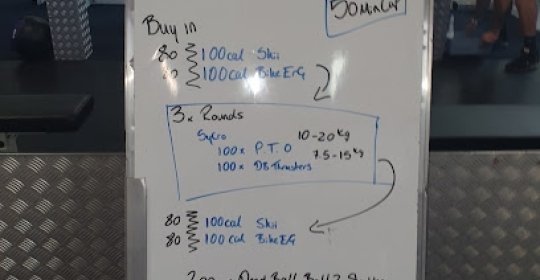 50 Min Cap
Buy in
80 100cal Skii
80 100cal BikeErG
3x Rounds
Syco 10-20kg
100x P.T.O 7.5-15kg
100x DB Thrusters
80 100cal Skii
80 100cal BikeErG
Ball